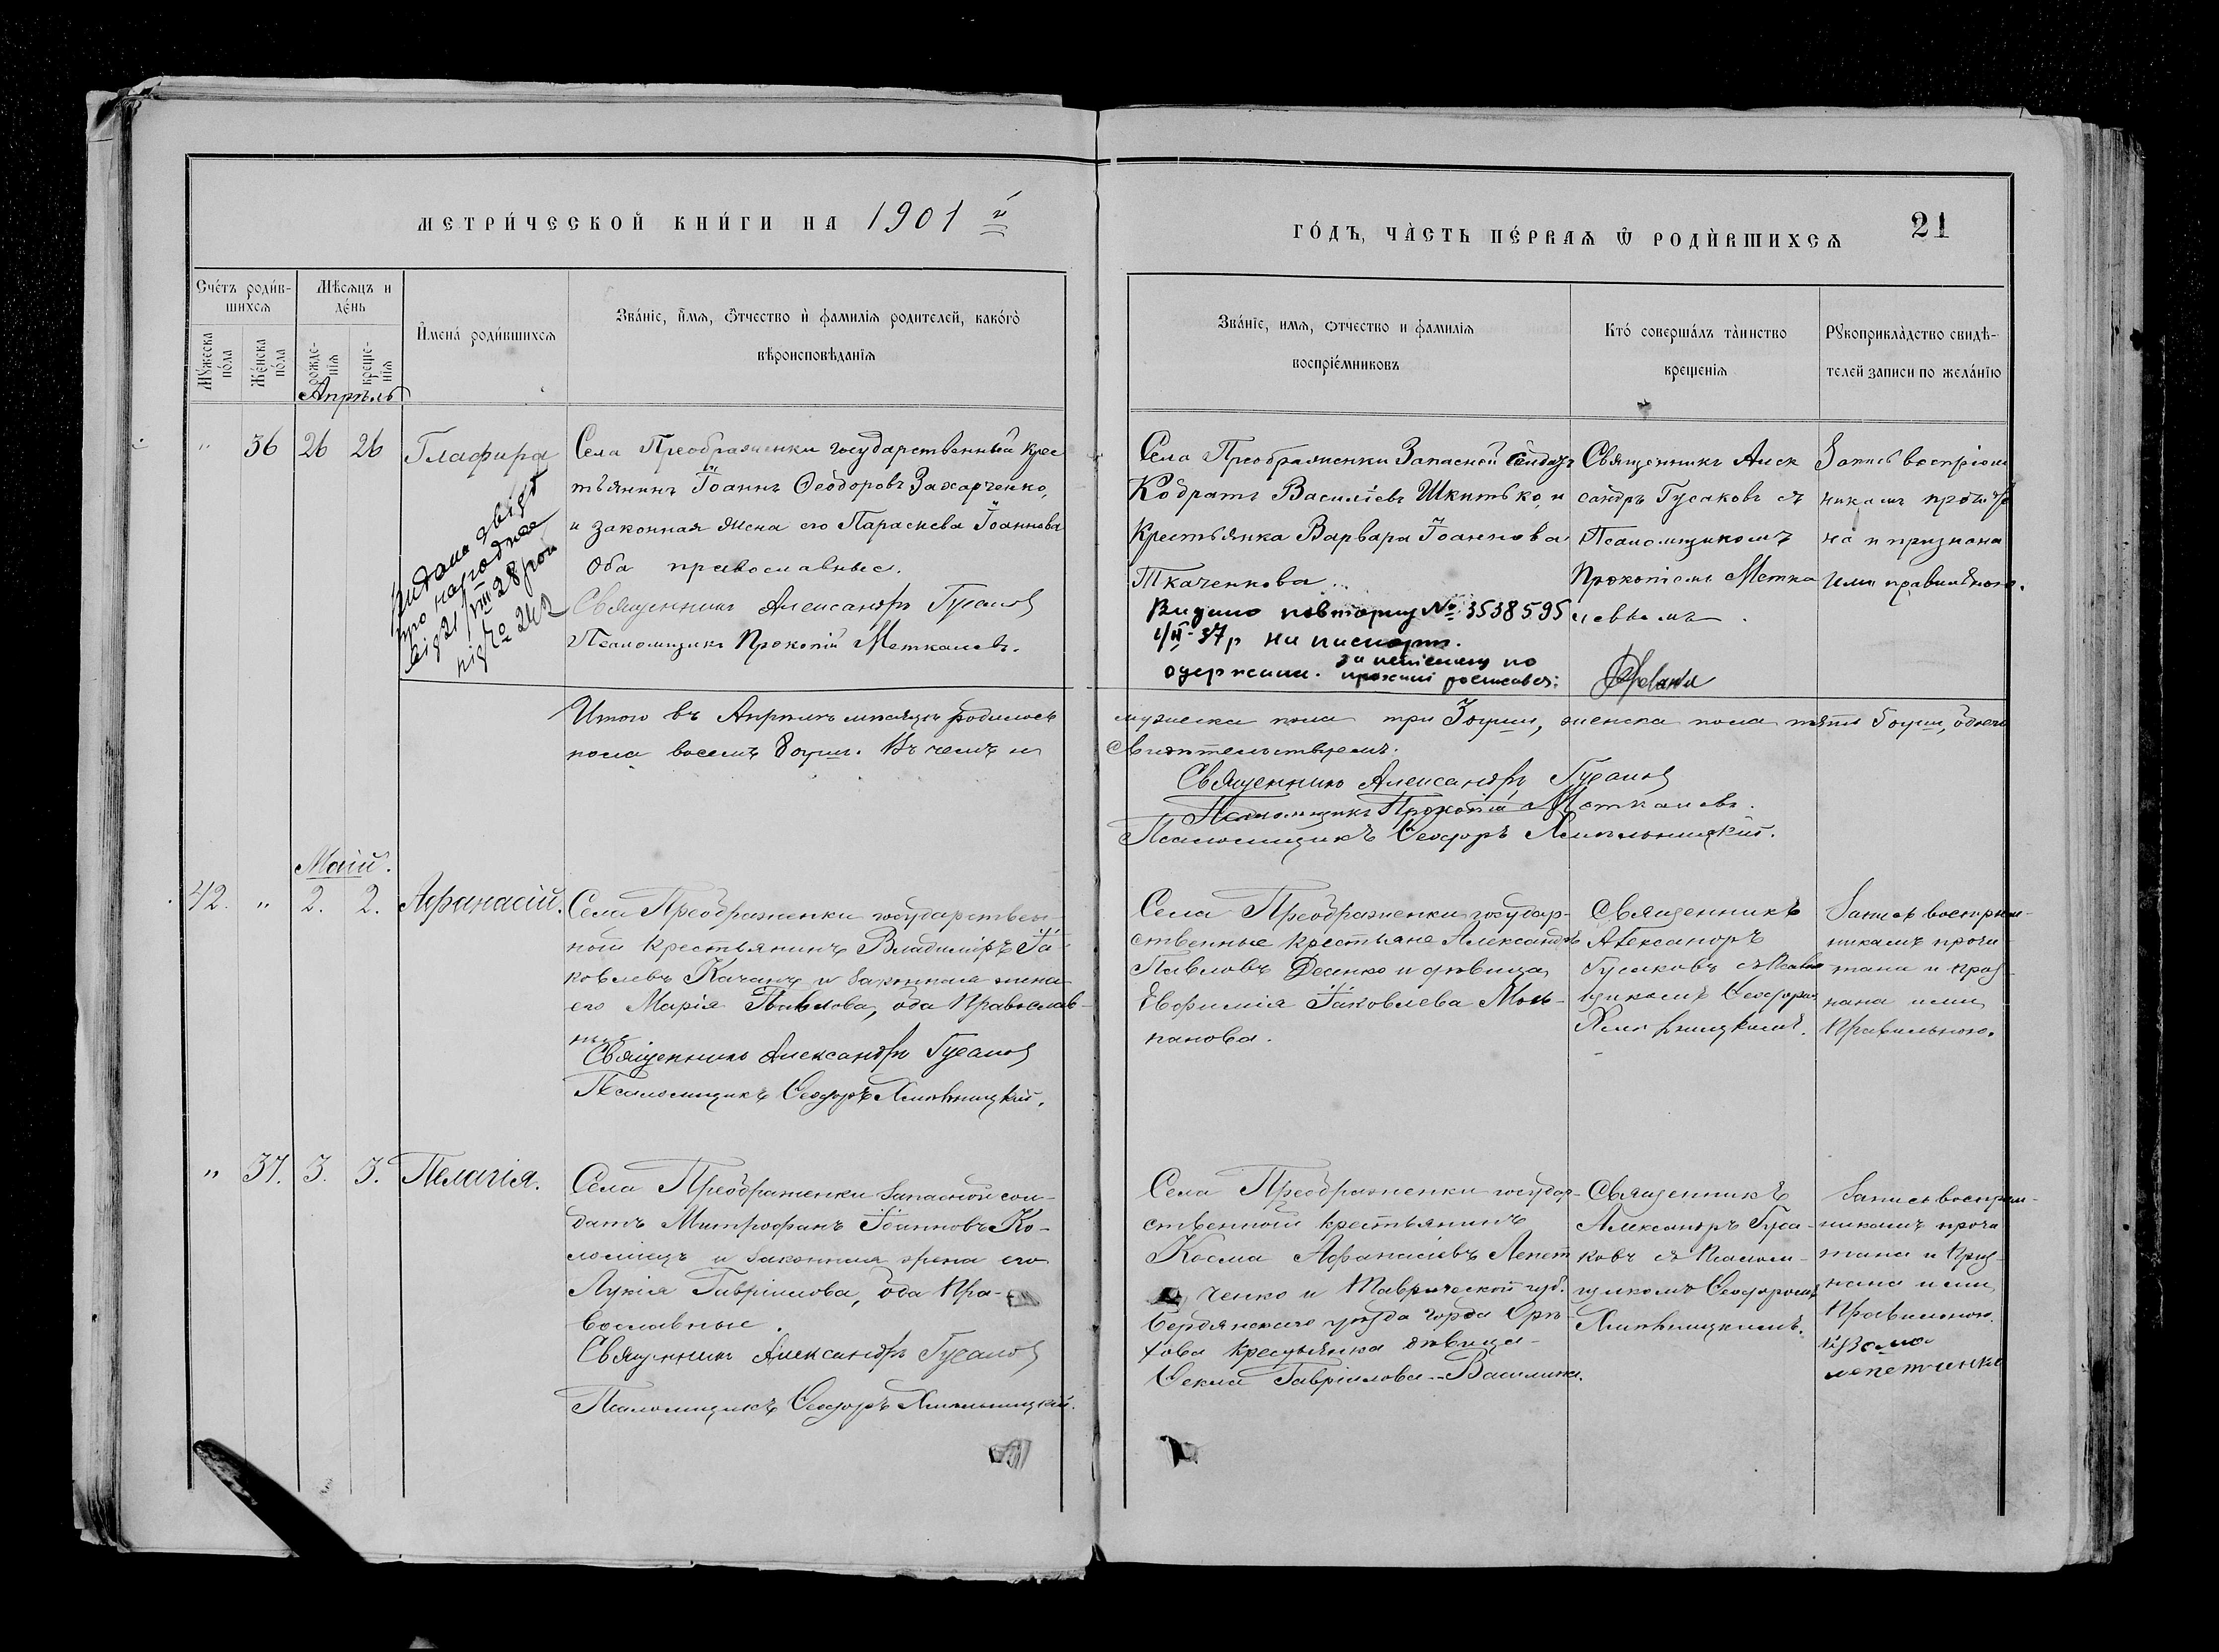 МЕТРИ́ЧЕСКОЙ КНИ́ГИ НА 1901 й
ГО́ДЪ, ЧА̀СТЬ ПЕ́РВАѦ Ѿ РОДЍВШИХСѦ
21
Сче́тъ роди́в-
шихсѧ
Мѣ́сѧцъ и
де́нь
И҆мена̀ роди́вшихсѧ
Зва́нїе, и҆́мѧ, ѻ҆́тчество и҆ фамилїѧ родителей, како́гѡ
вѣроисповѣданїѧ
Мꙋ́жеска
по́ла
Же́нска
по́ла
рожде-
нїѧ
креще-
нїѧ
Зва́нїе, имѧ, ѻтчество и фамилїѧ
воспрїе́мниковъ
Кто́ соверша́лъ та̀инство
креще́нїѧ
Рꙋкоприкла̀дство свидѣ-
телей записи по жела́нїю
Апрѣль
" 36 26 26 Глафира
Села Преображенки государственный крес
тьянинъ Іоаннъ Ѳеодоровъ Захарченко,
и законная жена его Параскева Іоаннова
Оба православные.
Священникъ Александръ Гусаковъ
Псаломщикъ Прокопій Меткалевъ.
Видана
про народжен
від 21/VIII 28 рок
під № 242
Села Преображенки Запасной Солдатъ
Кодратъ Василіевъ Шкитько, и
Крестьянка Варвара Іоаннова
Ткаченкова
Видано повторну № 3538595
37р на паспорт.
одержали.
Священникъ Алек
сандръ Гусаковъ съ
Псаломщикомъ
Прокопіемъ Метка
левымъ
Запись воспріем
никамъ прочита
на и признана
ими правильною.
Итого въ Апрѣлѣ мѣсяцѣ родилось
мужеска пола три 3 души, женска пола пять 5 душъ, обоего
пола восемь 8 душъ. Въ чемъ и
свидѣтельствуемъ.
Священникъ Александръ Гусаковъ
Псаломщикъ Прокопій Меткалевъ.
Псаломщикъ Ѳеодоръ Хмѣльницкій.
Маій.
42. " 2. 2. Афанасій.
Села Преображенки государствен-
ной крестьянинъ Владиміръ Іа-
ковлевъ Качанъ и законная жена
его Марія Павлова, оба Православ-
ные
Священникъ Александръ Гусаковъ
Псаломщикъ Ѳеодоръ Хмѣльницкій.
Села Преображенки государ-
ственные крестьяне Александръ
Павловъ Деенко и дѣвица
Евфимія Іаковлева
панова.
Священникъ
Александръ
Гусаковъ съ Псалом
щикомъ Ѳеодоромъ
Хмѣльницкимъ.
Запись воспріем-
никамъ прочи-
тана и приз-
нана ими
Правильною.
" 37. 3. 3. Пелагія.
Села Преображенки Запасной сол-
датъ Митрофанъ Іоанновъ Ко-
ломіецъ и законная жена его
Лукія Гавріилова, оба Пра-
вославные.
Священникъ Александръ Гусаковъ
Псаломщикъ Ѳеодоръ Хмѣльницкій.
Села Преображенки государ-
ственной крестьянинъ
Косма Афанасіевъ Лепет
ченко и Таврической губ.
Бердянскаго уѣзда города Орѣ-
хова крестьянка дѣвица
Ѳекла Гавріилова Василина.
Священникъ
Александръ Гуса-
ковъ съ Псалом-
щикомъ Ѳеодоромъ
Хмѣльницкимъ.
Запись воспріем-
никамъ прочи
тана и приз-
нана ими
Правильною.
кузма
лепетченко